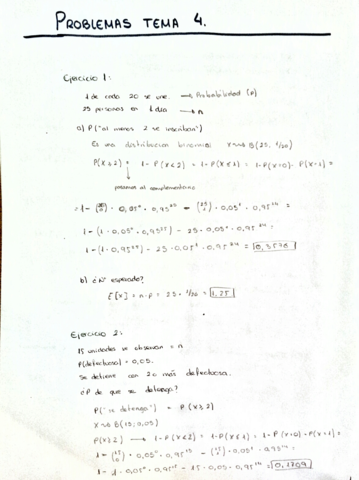 PROBLEMAS TEMA 4.
Ejercicio 1:
1 de cada 20 se une. → Probabilidad (p)
25 personas en 1 día → n
a) P("al menos 2 se inscriban")
Es una distribución binomial X~B(25, 1/20)
P(X≥2) = 1-P(X<2) = 1-P(X≤1) = 1-P(X=0)-P(X=1) =
pasamos al complementario
= 1-(25 0)·0,05⁰·0,95²⁵ - (25 1)·0,05¹·0,95²⁴ =
1-(1·0,05⁰·0,95²⁵) - 25·0,05¹·0,95²⁴ =
1-(1·0,95²⁵) - 25·0,05¹·0,95²⁴ = 0,3576
b) ¿Nº esperado?
E[X] = n·p = 25·1/20 = 1,25
Ejercicio 2:
15 unidades se observan = n
P(defectuoso) = 0,05.
Se detiene con 2 o más defectuosa.
¿P de que se detenga?
P("se detenga") = P(X≥2)
X~B(15; 0,05)
P(X≥2) → 1-P(X<2) = 1-P(X≤1) = 1-P(X=0)-P(X=1) =
= 1-(15 0)·0,05⁰·0,95¹⁵ - (15 1)·0,05¹·0,95¹⁴ =
= 1-1·0,05⁰·0,95¹⁵ - 15·0,05·0,95¹⁴ = 0,1709